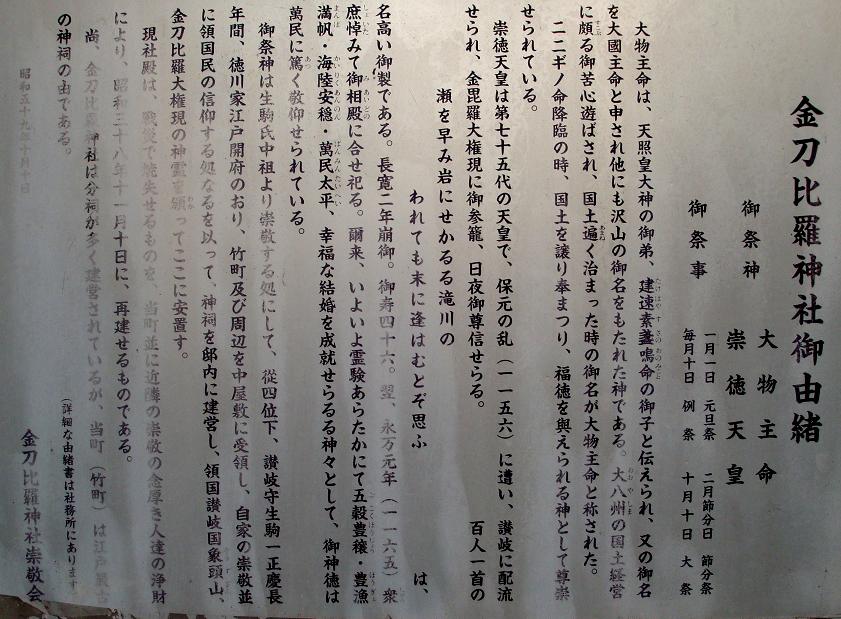 金刀比羅神社御由緒
御祭神 大物主命
崇徳天皇
御祭事 一月一日 元旦祭 二月節分日 節分祭
毎月十日 例祭 十月十日 大祭
大物主命は、天照皇大神の御弟、建速素盞鳴命の御子と伝えられ、又の御名
を大國主命と申され他にも沢山の御名をもたれた神である。大八州の国土経営
に頗る御苦心遊ばされ、国土遍く治まった時の御名が大物主命と称された。
ニニギノ命降臨の時、国土を譲り奉まつり、福徳を與えられる神として尊崇
せられている。
崇徳天皇は第七十五代の天皇で、保元の乱（一一五六）に遭い、讃岐に配流
せられ、金毘羅大権現に御参籠、日夜御尊信せらる。 百人一首の
瀬を早み岩にせかるる滝川の
われても末に逢はむとぞ思ふ は、
名高い御製である。長寛二年崩御。御寿四十六。翌、永万元年（一一六五）衆
庶悼みて御相殿に合せ祀る。爾来、いよいよ霊験あらたかにて五穀豊穣・豊漁
満帆・海陸安穏・萬民太平、幸福な結婚を成就せらるる神々として、御神徳は
萬民に篤く敬仰せられている。
御祭神は生駒氏中祖より崇敬する処にして、従四位下、讃岐守生駒一正慶長
年間、徳川家江戸開府のおり、竹町及び周辺を中屋敷に受領し、自家の崇敬並
に領国民の信仰する処なるを以って、神祠を邸内に建営し、領国讃岐国象頭山、
金刀比羅大権現の神霊を頒ってここに安置す。
現社殿は、戦災で焼失せるものを、当町並に近隣の崇敬の念厚き人達の浄財
により、昭和三十八年十一月十日に、再建せるものである。
尚、金刀比羅神社は分祠が多く建営されているが、当町（竹町）は江戸最古
の神祠の由である。
（詳細な由緒書は社務所にあります
昭和五十九年十月十日
金刀比羅神社崇敬会